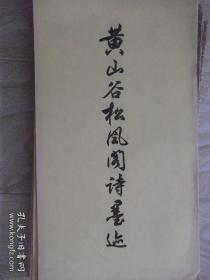 黄山谷松风阁诗墨迹
孔夫子旧书网